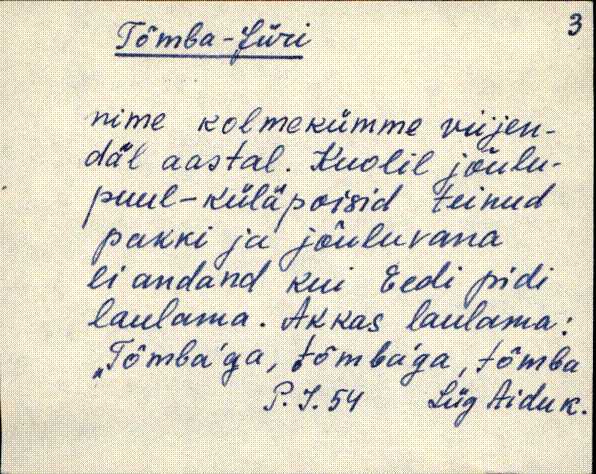 3
Tõmba-Jüri
nime kolmekümme viijen-
däl aastal. Kuolil jõulu-
puul-küläpoisid teinud
pakki ja jõuluvana
ei andand kui Eedi pidi
laulama. Akkas laulama:
„Tõmba'ga, tõmba'ga, tõmba
P. J. 54 Lüg Aidu k.